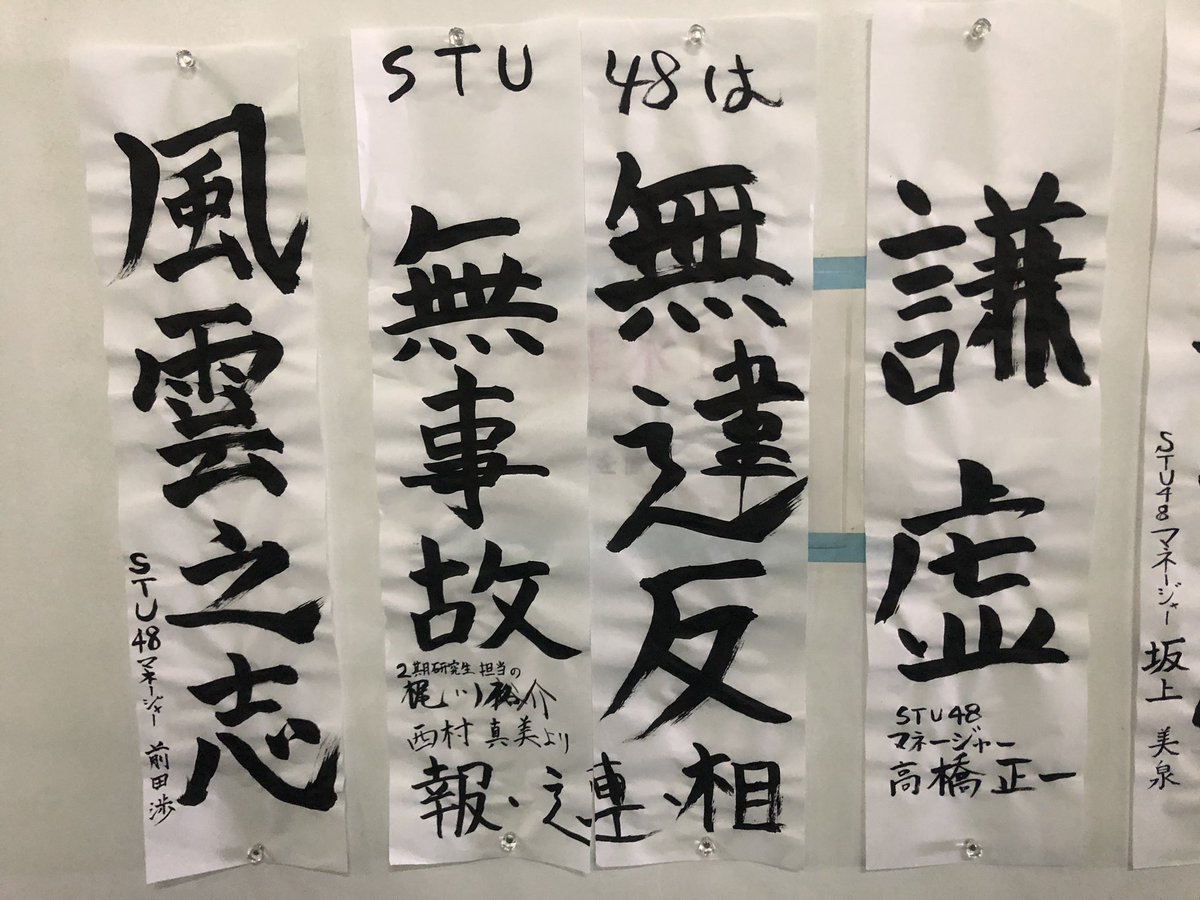 風雲之志
STU48マネージャー 前田渉
STU48は
無事故
無違反
2期研究生担当の
梶川裕介
西村真美より
報・連・相
謙虚
STU48
マネージャー
高橋正一
STU48マネージャー 坂上美泉